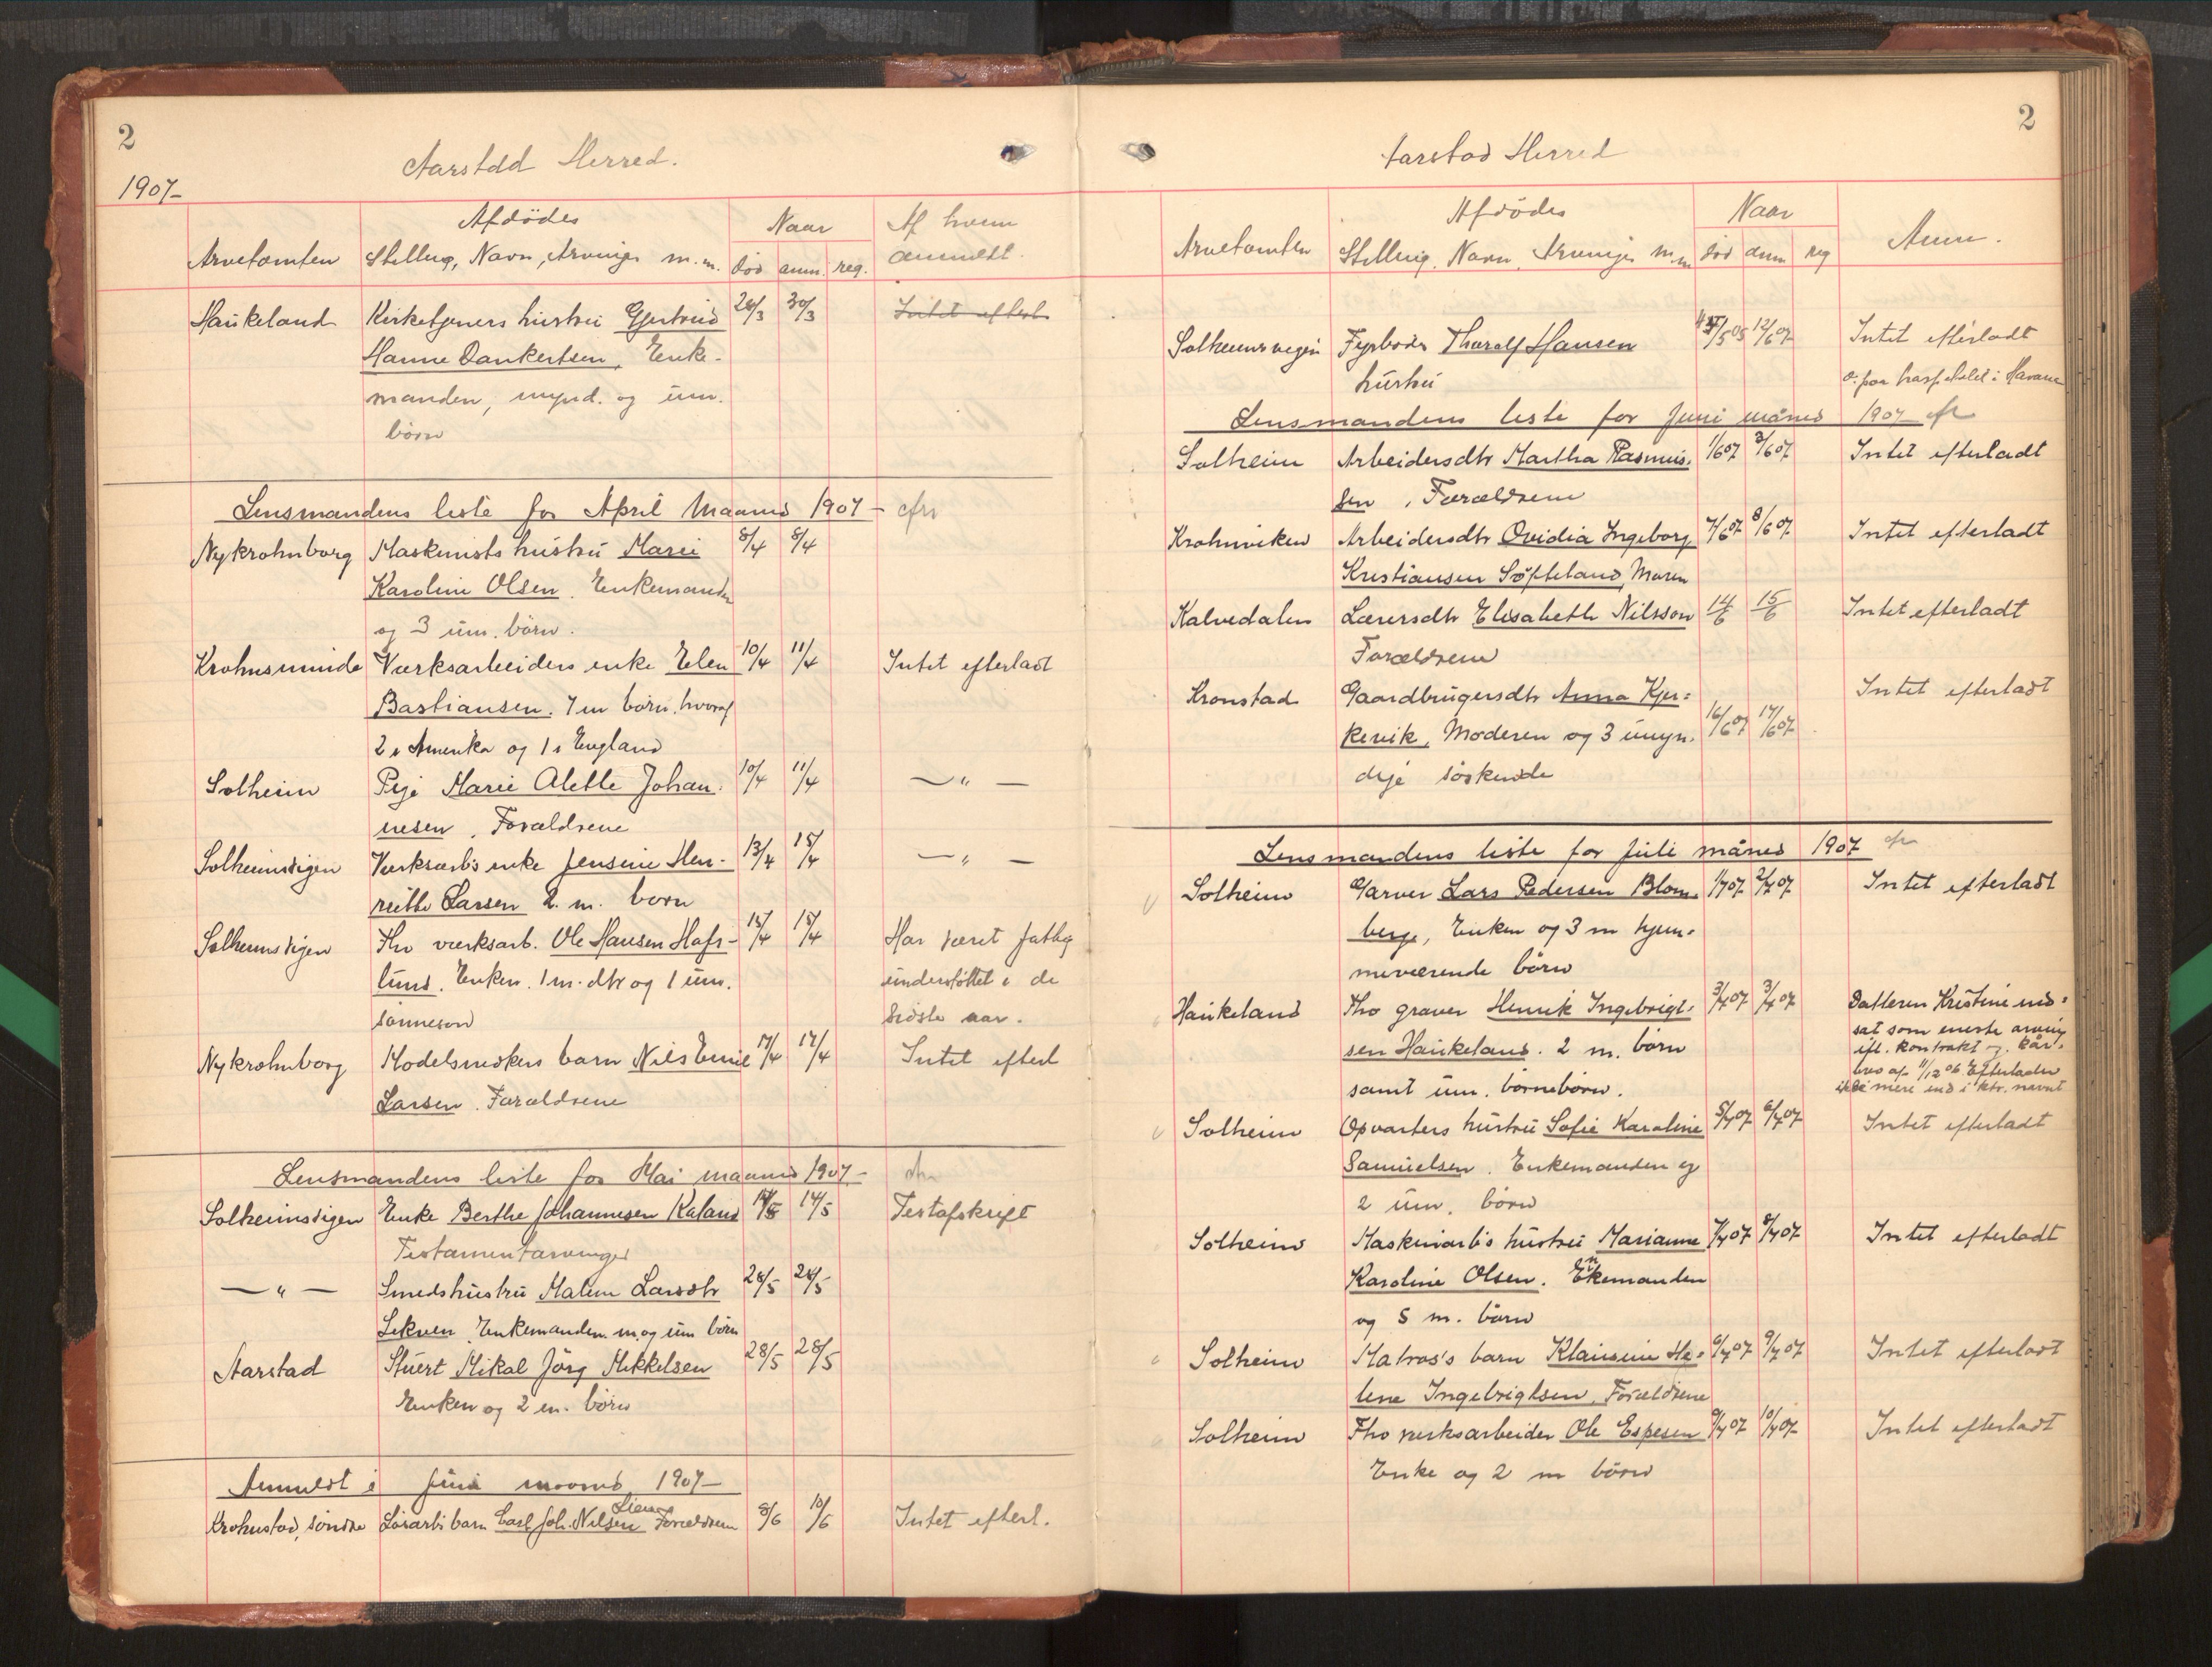 2
Aarstad Herred.
1907-
Afdödes
Naar
Af hvem
Arvetomten
Stelling, Navn, Arvinger m.m.
död
anm.
reg.
anmeldt.
Haukeland Kirketjeners hustru Gjertrud 28/3 30/3 Intet efterl.
Hanne Dankertsen, Enke-
manden, mynd. og um.
börn
Lensmandens liste for April Maaned 1907 - cfr
Nykrohnborg Maskinists hustru Marie 8/4 8/4
Karoline Olsen. Enkemanden
og 3 um. börn.
Krohnsminde Værksarbeiders enke Elen 10/4 11/4 Intet efterladt
Bastiansen. 7 m börn, hvoraf
2 i Amerika og 1 i England
Solheim Pige Marie Alette Johan- 10/4 11/4 — " —
nesen, Forældrene
Solheimsvigen Værksarb's enke Jensine Hen- 13/4 15/4 — " —
riette Larsen 2. m. börn
Solheimsvigen Fhv værksarb. Ole Hansen Hafs- 15/4 15/4 Har været fattig
lund. Enken. 1 m. dtr og 1 um. understöttet i de
sönnesön sidste aar.
Nykrohnborg Modelsnedkers barn Nils Emil 17/4 17/4 Intet efterl
Larsen. Forældrene
Lensmandens liste for Mai maaned 1907 -
Solheimsvigen Enke Berthe Johannesen Kaland 14/5 14/5 Testafskrift
Testamentarvinger
— " — Smedshustru Malene Larsdtr 28/5 28/5
Lekven, Enkemanden. m. og um börn
Aarstad Stuert Mikal Jörg Mikkelsen 28/5 28/5
Enken og 2 m. börn
Anmeldt i Juni maaned 1907 -
Lien
Krohnstad, söndre Lösarb's barn Carl Joh. Nilsen Forældrene 8/6 10/6 Intet efterl.
2
Aarstad Herred
Afdödes
Naar
Arvetomten Stelling, Navn, Arvinger m.m död anm reg Anm.
Solheimsvegen Fyrböder Tharalf Hansen /5 05 12/6 07 Intet efterladt
hustru d. paa hospitalet i Havana
Lensmandens liste for Juni måned 1907 cfr
Solheim Arbeidersdtr Martha Rasmus- 1/6 07 3/6 07 Intet efterladt
sen, Forældrene
Krohnviken Arbeidersdtr Ovidia Ingeborg 7/6 07 8/6 07 Intet efterladt
Kristiansen Söfteland, Moren
Kalvedalen Lærersdtr Elisabeth Nilsson 14/6 15/6 Intet efterladt
Forældrene
Kronstad Gaardbrugersdtr Anna Kjer- Intet efterladt
kevik, Moderen og 3 umyn- 16/6 07 17/6 07
dige söskende
Lensmandens liste for Juli måned 1907 cfr
Solheim Garver Lars Pedersen Blom- 1/7 07 2/7 07 Intet efterladt
berg, Enken og 3 m hjem-
meværende börn
Haukeland Fhv graver Henrik Ingebrigt- 3/7 07 3/7 07 Datteren Kristine ind-
sen Haukeland. 2 m. börn sat som eneste arving
ifl. kontrakt og kår-
samt um. börnebörn. brev af 11/12 06 Efterlader
ikke mere end i ktr. nævnt
Solheim Opvarters hustru Sofie Karoline 5/7 07 6/7 07 Intet efterladt
Samuelsen. Enkemanden og
2 um. börn
Solheim Maskinarb's hustru Marianne 7/7 07 8/7 07 Intet efterladt
Karoline Olsen. Enkemanden
og 5 m. börn
Solheim Matros's barn Klausine He- 6/7 07 9/7 07 Intet efterladt
lene Ingebrigtsen, Forældrene
Solheim Fhv verksarbeider Ole Espesen 9/7 07 10/7 07 Intet efterladt
Enke og 2 m börn